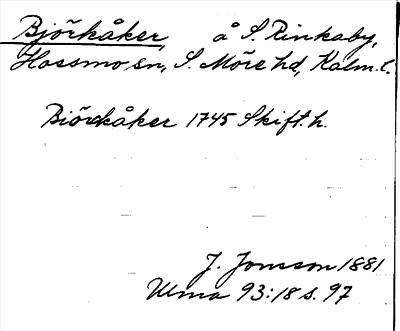 Björkåker, å S. Rinkaby,
Hossmo sn, S. Möre hd, Kalm. l.
Biörkåker 1745 Skift. h.
J. Jonsson 1881
Ulma 93:18 s. 97